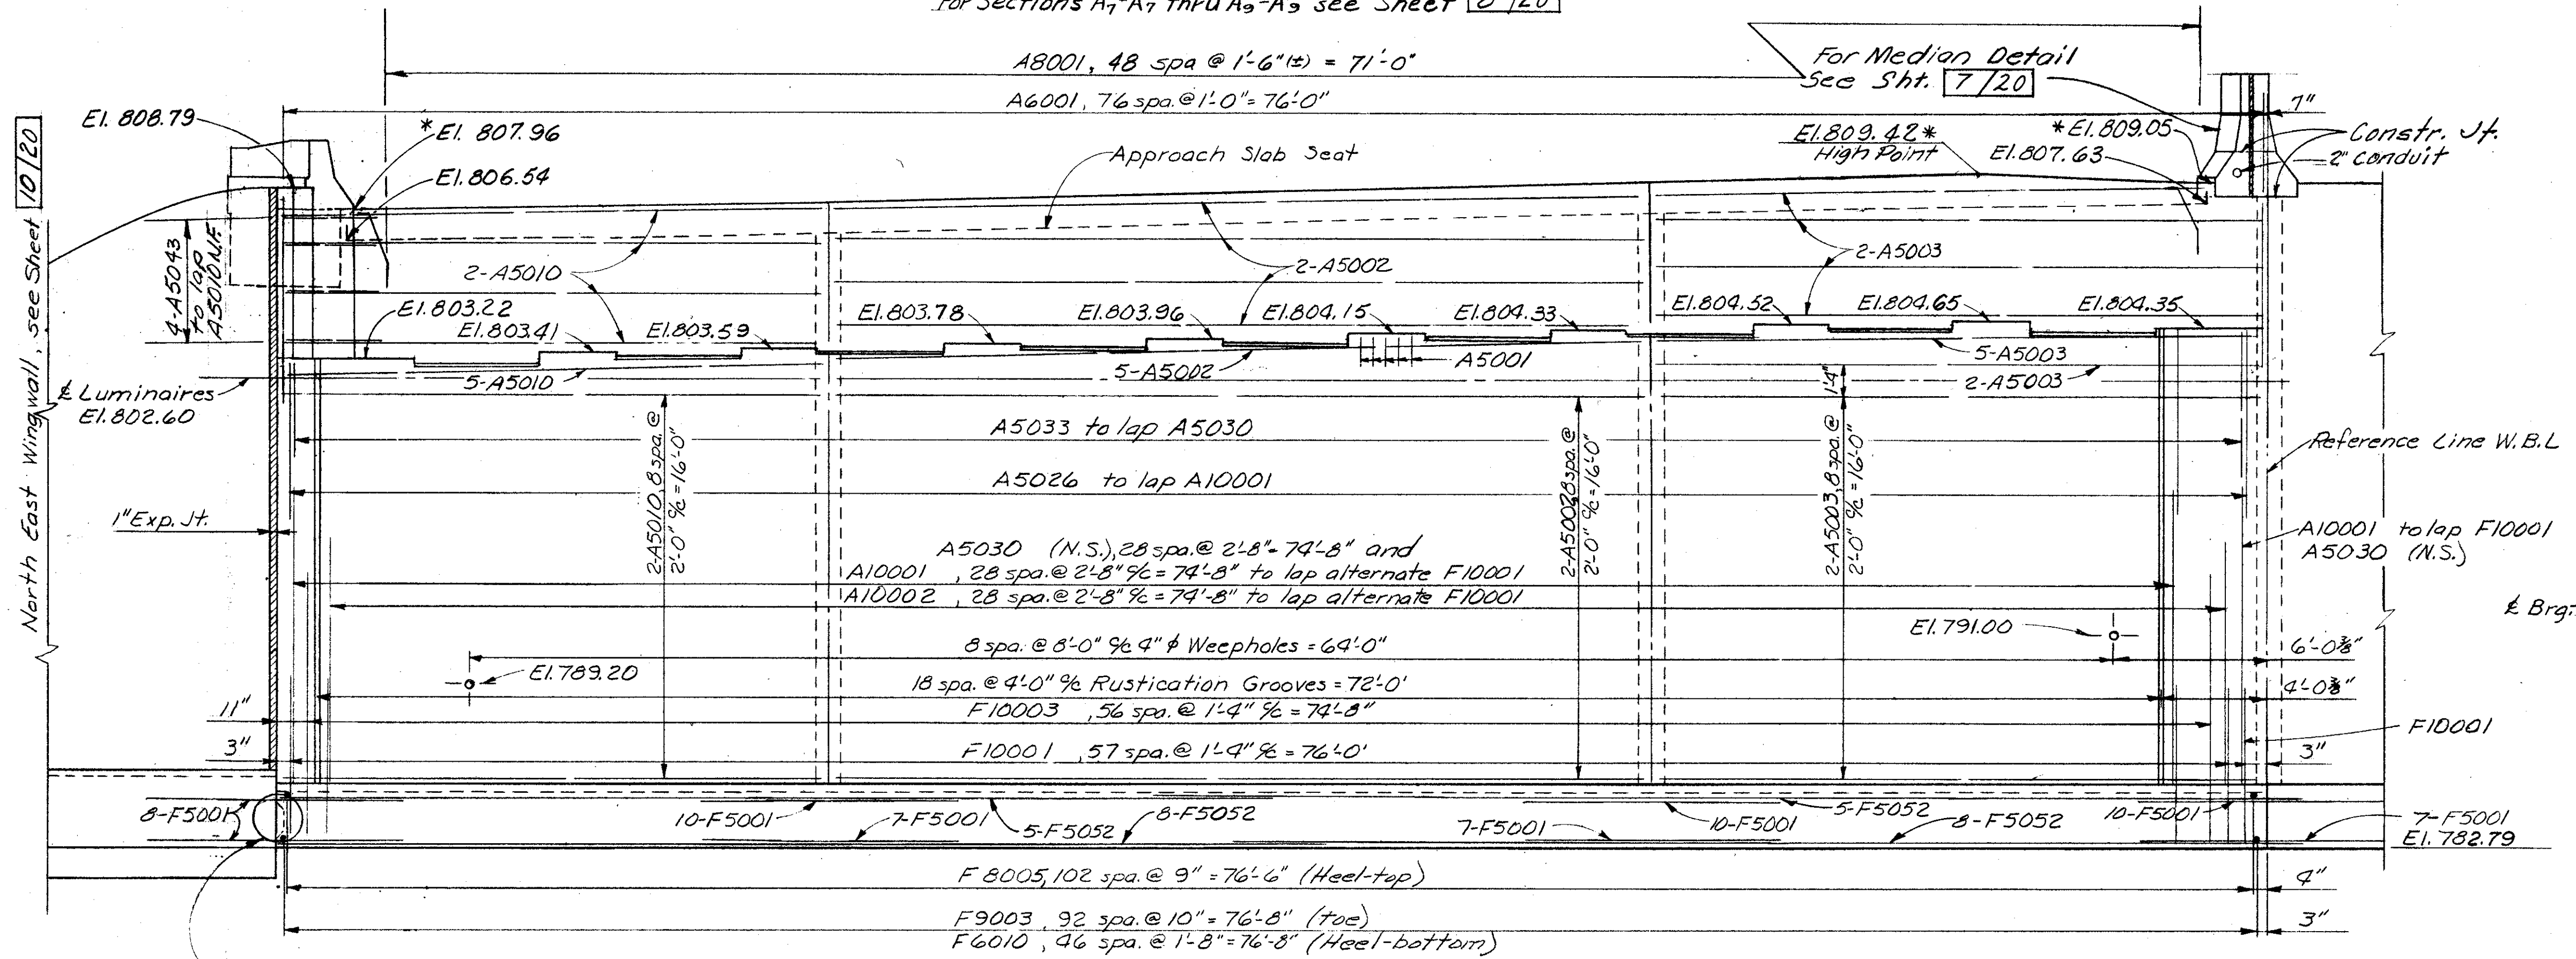 For Sections A7-A7 thru A9-A9 see Sheet 8/20
A8001, 48 spa @ 1'-6"(±) = 71'-0"
For Median Detail
See Sht. 7/20
A6001, 76 spa. @ 1'-0" = 76'-0"
7"
El. 808.79
*El. 807.96
El. 806.54
Approach Slab Seat
El. 809.42*
High Point
*El. 809.05
El. 807.63
Constr. Jt.
2" Conduit
North East Wingwall, see Sheet 10/20
4-A5043
to lap
A5010 N.F.
2-A5010
2-A5002
2-A5003
El. 803.22
El. 803.41
El. 803.59
El. 803.78
El. 803.96
El. 804.15
El. 804.33
El. 804.52
El. 804.65
El. 804.35
5-A5010
5-A5002
A5001
5-A5003
2-A5003
1'-4"
℄ Luminaires
El. 802.60
A5033 to lap A5030
Reference Line W.B.L
A5026 to lap A10001
2-A5010, 8 spa. @
2'-0" c/c = 16'-0"
2-A5002, 8 spa. @
2'-0" c/c = 16'-0"
2-A5003, 8 spa. @
2'-0" c/c = 16'-0"
1" Exp. Jt.
A10001 to lap F10001
A5030 (N.S.)
A5030 (N.S.), 28 spa. @ 2'-8" = 74'-8" and
A10001 , 28 spa. @ 2'-8" c/c = 74'-8" to lap alternate F10001
A10002 , 28 spa. @ 2'-8" c/c = 74'-8" to lap alternate F10001
℄ Brg.
El. 791.00
8 spa. @ 8'-0" c/c 4" ϕ Weepholes = 64'-0"
6'-0⅜"
El. 789.20
18 spa. @ 4'-0" c/c Rustication Grooves = 72'-0'
4'-0⅜"
11"
F10003 , 56 spa. @ 1'-4" c/c = 74'-8"
F10001
3"
F10001 , 57 spa. @ 1'-4" c/c = 76'-0'
3"
8-F5001
10-F5001
7-F5001
5-F5052
8-F5052
7-F5001
10-F5001
5-F5052
8-F5052
10-F5001
7-F5001
El. 782.79
F8005, 102 spa. @ 9" = 76'-6" (Heel-top)
4"
F9003 , 92 spa. @ 10" = 76'-8" (toe)
3"
F6010 , 46 spa. @ 1'-8" = 76'-8" (Heel-bottom)